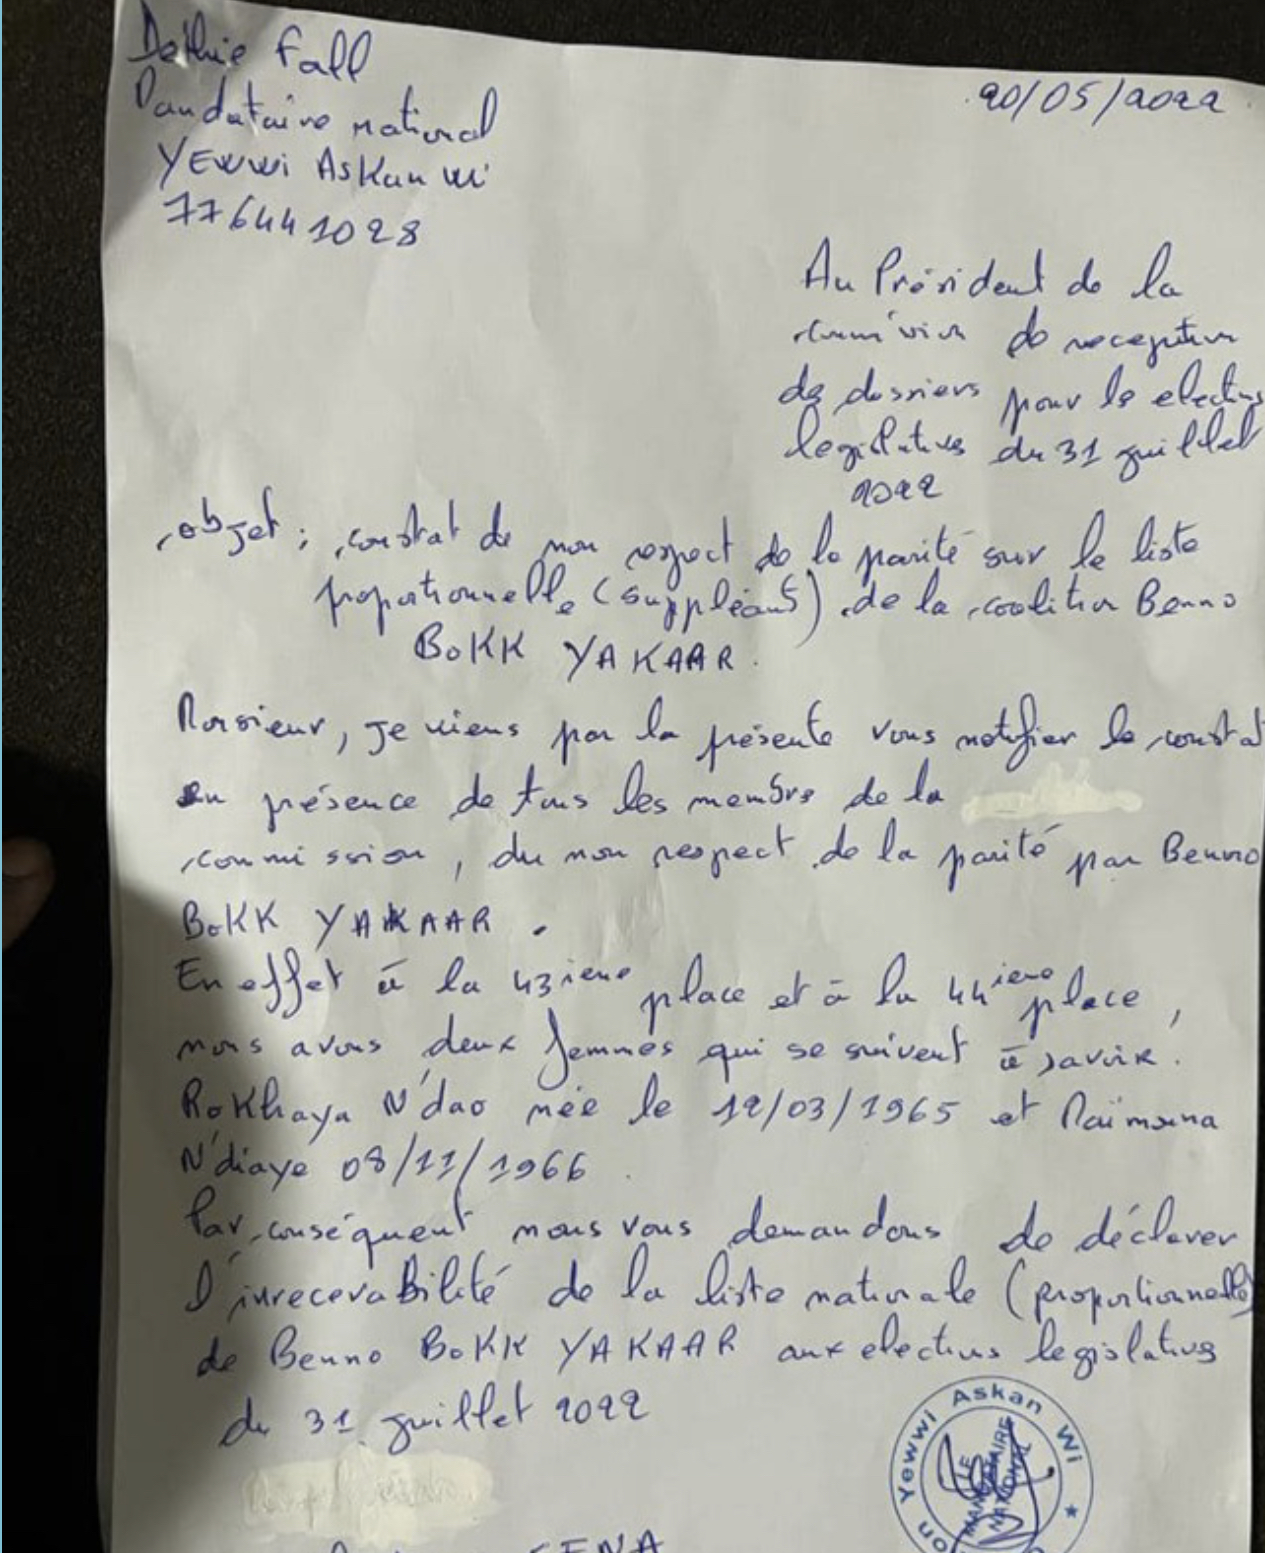 Déthie Fall
Mandataire national
YEWWi ASKan wi
776441028
20/05/2022
Au Président de la
commission de reception
de dossiers pour le elections
legislatives du 31 juillet
2022
objet : constat de non respect de la parité sur le liste
proportionnelle (suppléants) de la coalition Benno
BoKK YAKAAR.
Monsieur, je viens par la présente vous notifier le constat
en présence de tous les membre de la
commission, du non respect de la parité par Benno
BoKK YAKAAR.
En effet à la 43ieme place et à la 44ieme place,
nous avons deux femmes qui se suivent à savoir.
RoKhaya N'dao née le 12/03/1965 et Maïmouna
N'diaye 08/11/1966.
Par conséquent nous vous demandons de déclarer
l'irrecevabilité de la liste nationale (proportionnelle)
de Benno BoKK YAKAAR aux elections legislatives
du 31 juillet 2022
Yewwi Askan Wi
LE
MANDATAIRE
NATIONAL